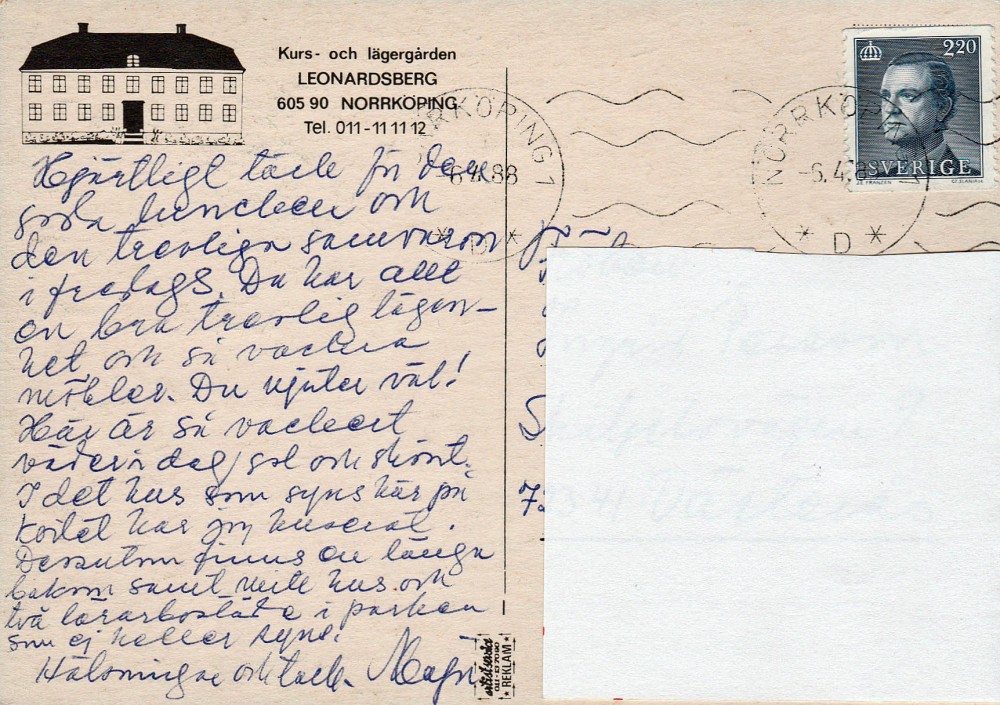 Kurs- och lägergården
LEONARDSBERG
605 90 NORRKÖPING
Tel. 011-11 11 12
NORRKÖPING 1
-6.4.88
* D *
NORRKÖPING 1
-6.4.8
* D *
2.20
SVERIGE
Hjärtligt tack för den
goda lunchen och
den trevliga samvaron
i fredags. Du har allt
en bra trevlig lägen-
het, och så vackra
möbler. Du njuter väl!
Här är så vackert
väder i dag, sol och skönt.
I det hus som syns här på
kortet har jag huserat.
Dessutom finns en länga
bakom samt vitt hus och
två lärarbostäder i parken
som ej heller syns.
Hälsningar och tack.
REKLAM